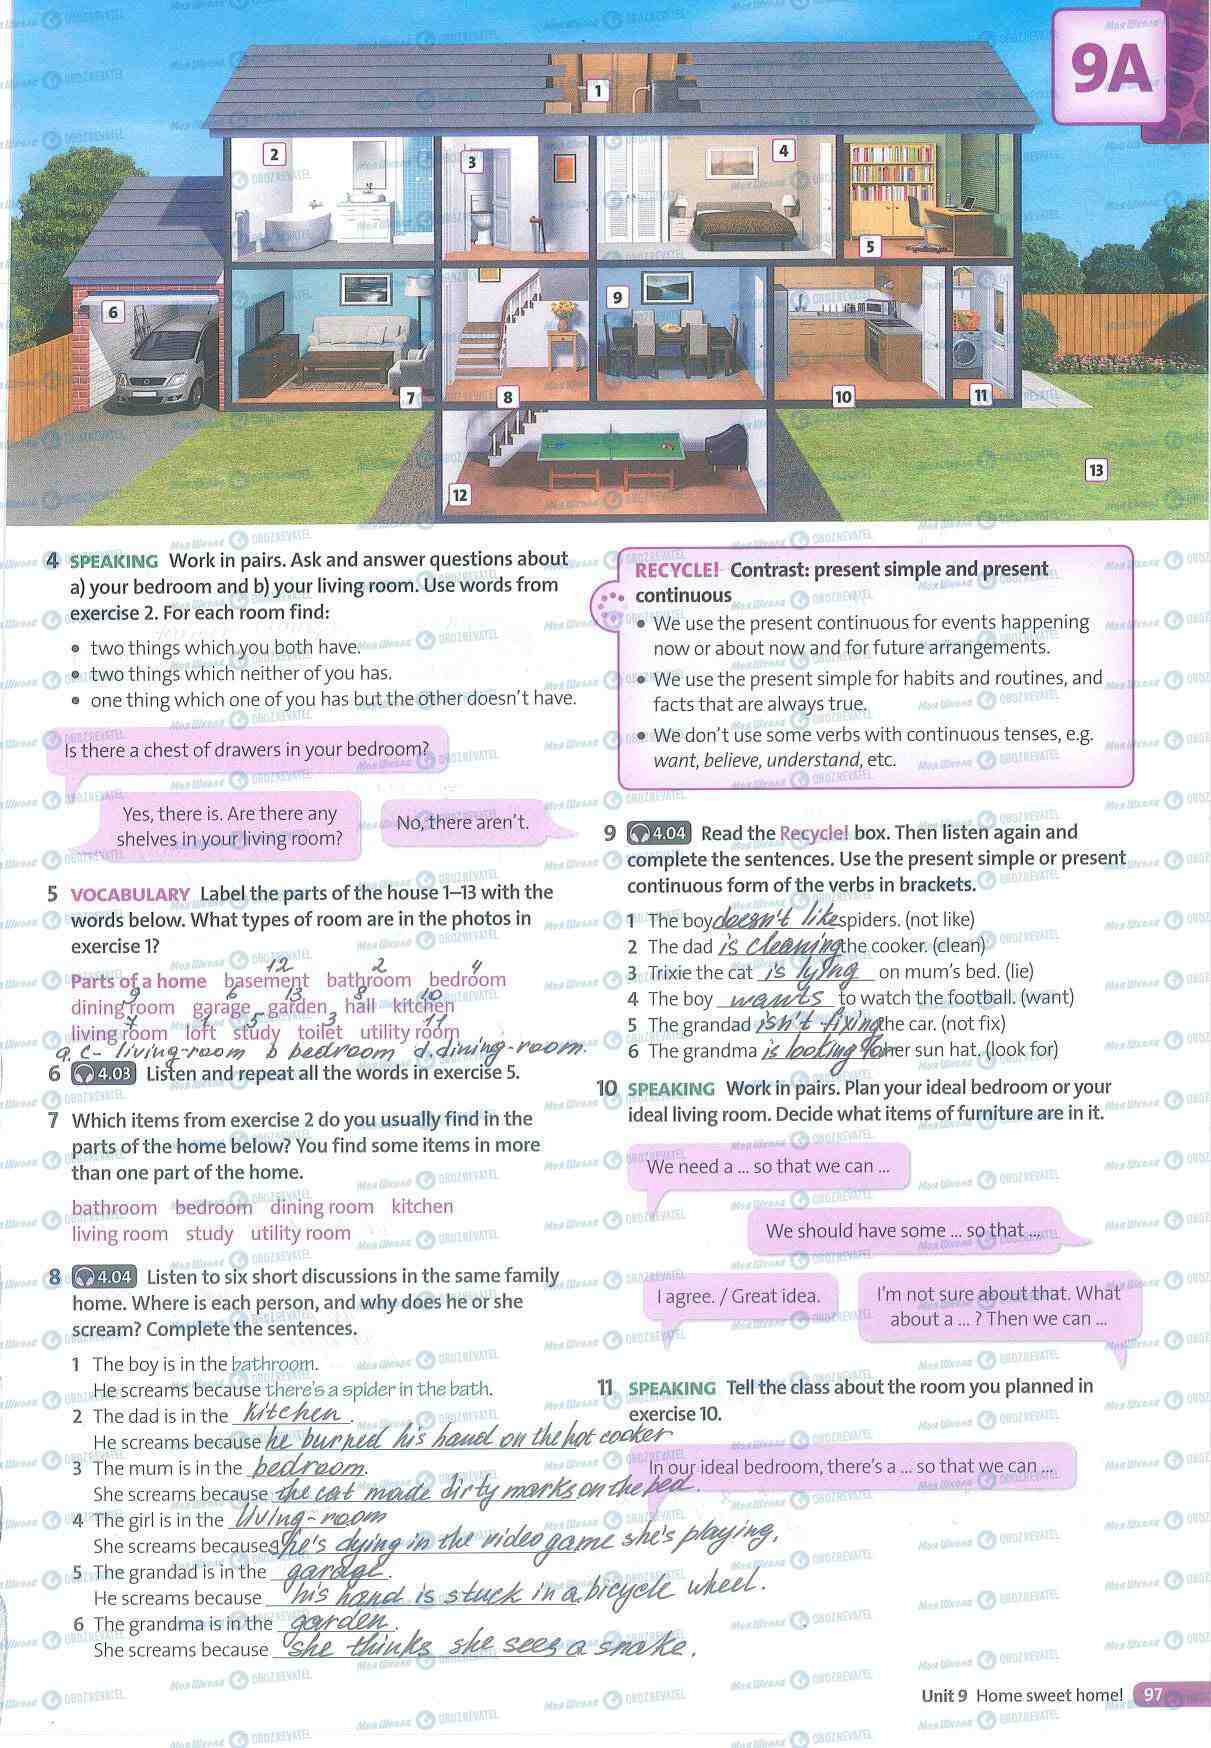 9A
1
2
3
4
5
6
7
8
9
10
11
12
13
4 SPEAKING Work in pairs. Ask and answer questions about
a) your bedroom and b) your living room. Use words from
exercise 2. For each room find:
• two things which you both have.
• two things which neither of you has.
• one thing which one of you has but the other doesn't have.
Is there a chest of drawers in your bedroom?
Yes, there is. Are there any
shelves in your living room?
No, there aren't.
5 VOCABULARY Label the parts of the house 1–13 with the
words below. What types of room are in the photos in
exercise 1?
12 2 4
Parts of a home basement bathroom bedroom
9 6 13 8 10
dining room garage garden hall kitchen
7 1 5 3 11
living room loft study toilet utility room
a, c - living-room b bedroom d. dining-room.
6 4.03 Listen and repeat all the words in exercise 5.
7 Which items from exercise 2 do you usually find in the
parts of the home below? You find some items in more
than one part of the home.
bathroom bedroom dining room kitchen
living room study utility room
8 4.04 Listen to six short discussions in the same family
home. Where is each person, and why does he or she
scream? Complete the sentences.
1 The boy is in the bathroom.
He screams because there's a spider in the bath.
2 The dad is in the kitchen.
He screams because he burned his hand on the hot cooker
3 The mum is in the bedroom.
She screams because the cat made dirty marks on the bed.
4 The girl is in the living-room
She screams because she's dying in the video game she's playing.
5 The grandad is in the garage.
He screams because his hand is stuck in a bicycle wheel.
6 The grandma is in the garden.
She screams because she thinks she sees a snake.
RECYCLE! Contrast: present simple and present
continuous
• We use the present continuous for events happening
now or about now and for future arrangements.
• We use the present simple for habits and routines, and
facts that are always true.
• We don't use some verbs with continuous tenses, e.g.
want, believe, understand, etc.
9 4.04 Read the Recycle! box. Then listen again and
complete the sentences. Use the present simple or present
continuous form of the verbs in brackets.
1 The boy doesn't like spiders. (not like)
2 The dad is cleaning the cooker. (clean)
3 Trixie the cat is lying on mum's bed. (lie)
4 The boy wants to watch the football. (want)
5 The grandad isn't fixing the car. (not fix)
6 The grandma is looking for her sun hat. (look for)
10 SPEAKING Work in pairs. Plan your ideal bedroom or your
ideal living room. Decide what items of furniture are in it.
We need a ... so that we can ...
We should have some ... so that ...
I agree. / Great idea.
I'm not sure about that. What
about a ... ? Then we can ...
11 SPEAKING Tell the class about the room you planned in
exercise 10.
In our ideal bedroom, there's a ... so that we can ...
Unit 9 Home sweet home! 97
Моя Школа OBOZREVATEL